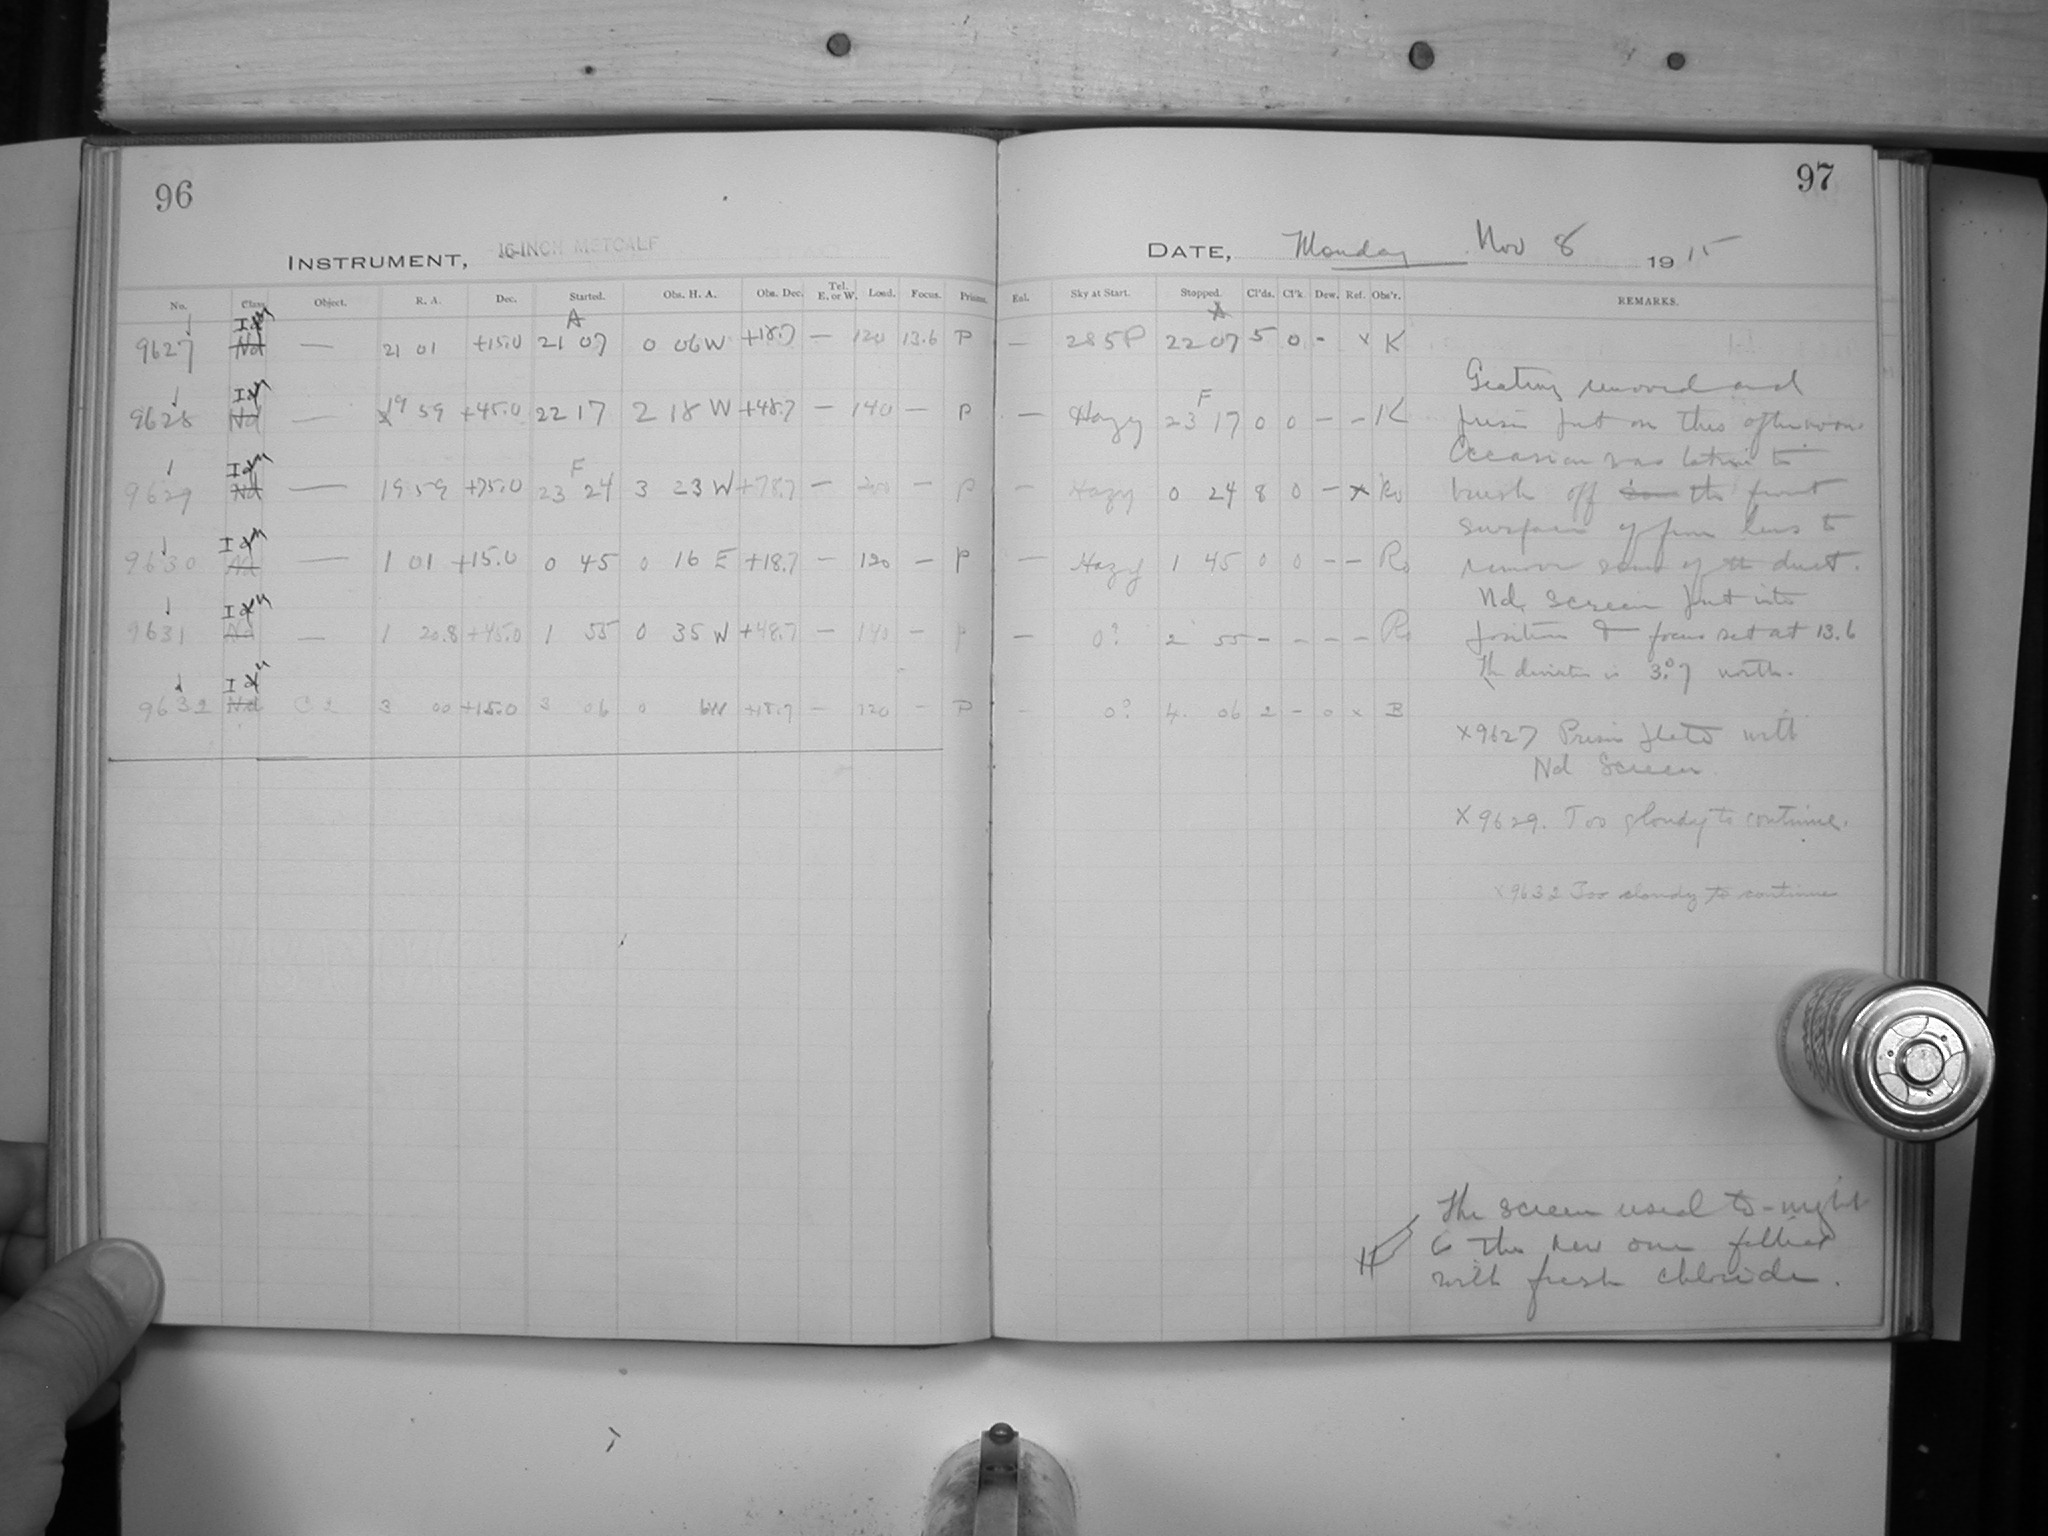 96
INSTRUMENT, 16-INCH METCALF
No. Class. Object. R. A. Dec. Started. Obs. H. A. Obs. Dec. Tel. E. or W. Load. Focus. Prisms.
A
9627 Nd — 21 01 +15.0 21 07 0 06 W +18.7 — 120 13.6 P
9628 Nd — 19 59 +45.0 22 17 2 18 W +48.7 — 140 — P
F
9629 Nd — 19 59 +75.0 23 24 3 23 W +78.7 — 200 — P
9630 Nd — 1 01 +15.0 0 45 0 16 E +18.7 — 120 — P
9631 Nd — 1 20.8 +45.0 1 55 0 35 W +48.7 — 140 — P
9632 Nd C 2 3 00 +15.0 3 06 0 6W +18.7 — 120 — P
97
DATE, Monday Nov 8 1915
Eol. Sky at Start. Stopped. Cl'ds. Cl'k. Dew. Ref. Obs'r. REMARKS.
A
— 285P 22 07 5 0 - x K
F
— Hazy 23 17 0 0 — — K
— Hazy 0 24 8 0 — x Ro
— Hazy 1 45 0 0 — — Ro
— 0? 2 55 — — — — Ro
- 0? 4 06 2 - 0 x B
Grating removed and
prism put on this afternoon.
Occasion was taken to
brush off the front
surface of lens to
remove some of the dust.
Nd. Screen put into
position & focus set at 13.6
The deviation is 3.°7 north.
X9627 Prism plate with
Nd Screen
X 9629. Too cloudy to continue.
X9632 Too cloudy to continue
The screen used to-night
is the new one filled
with fresh chloride.